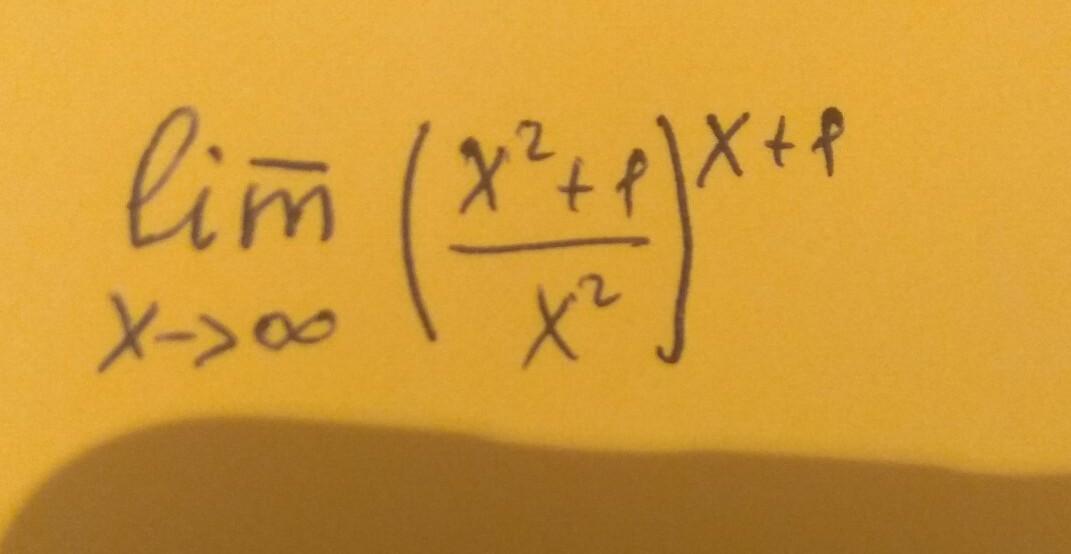 lim (x²+1 / x²)^(x+1)
x->∞